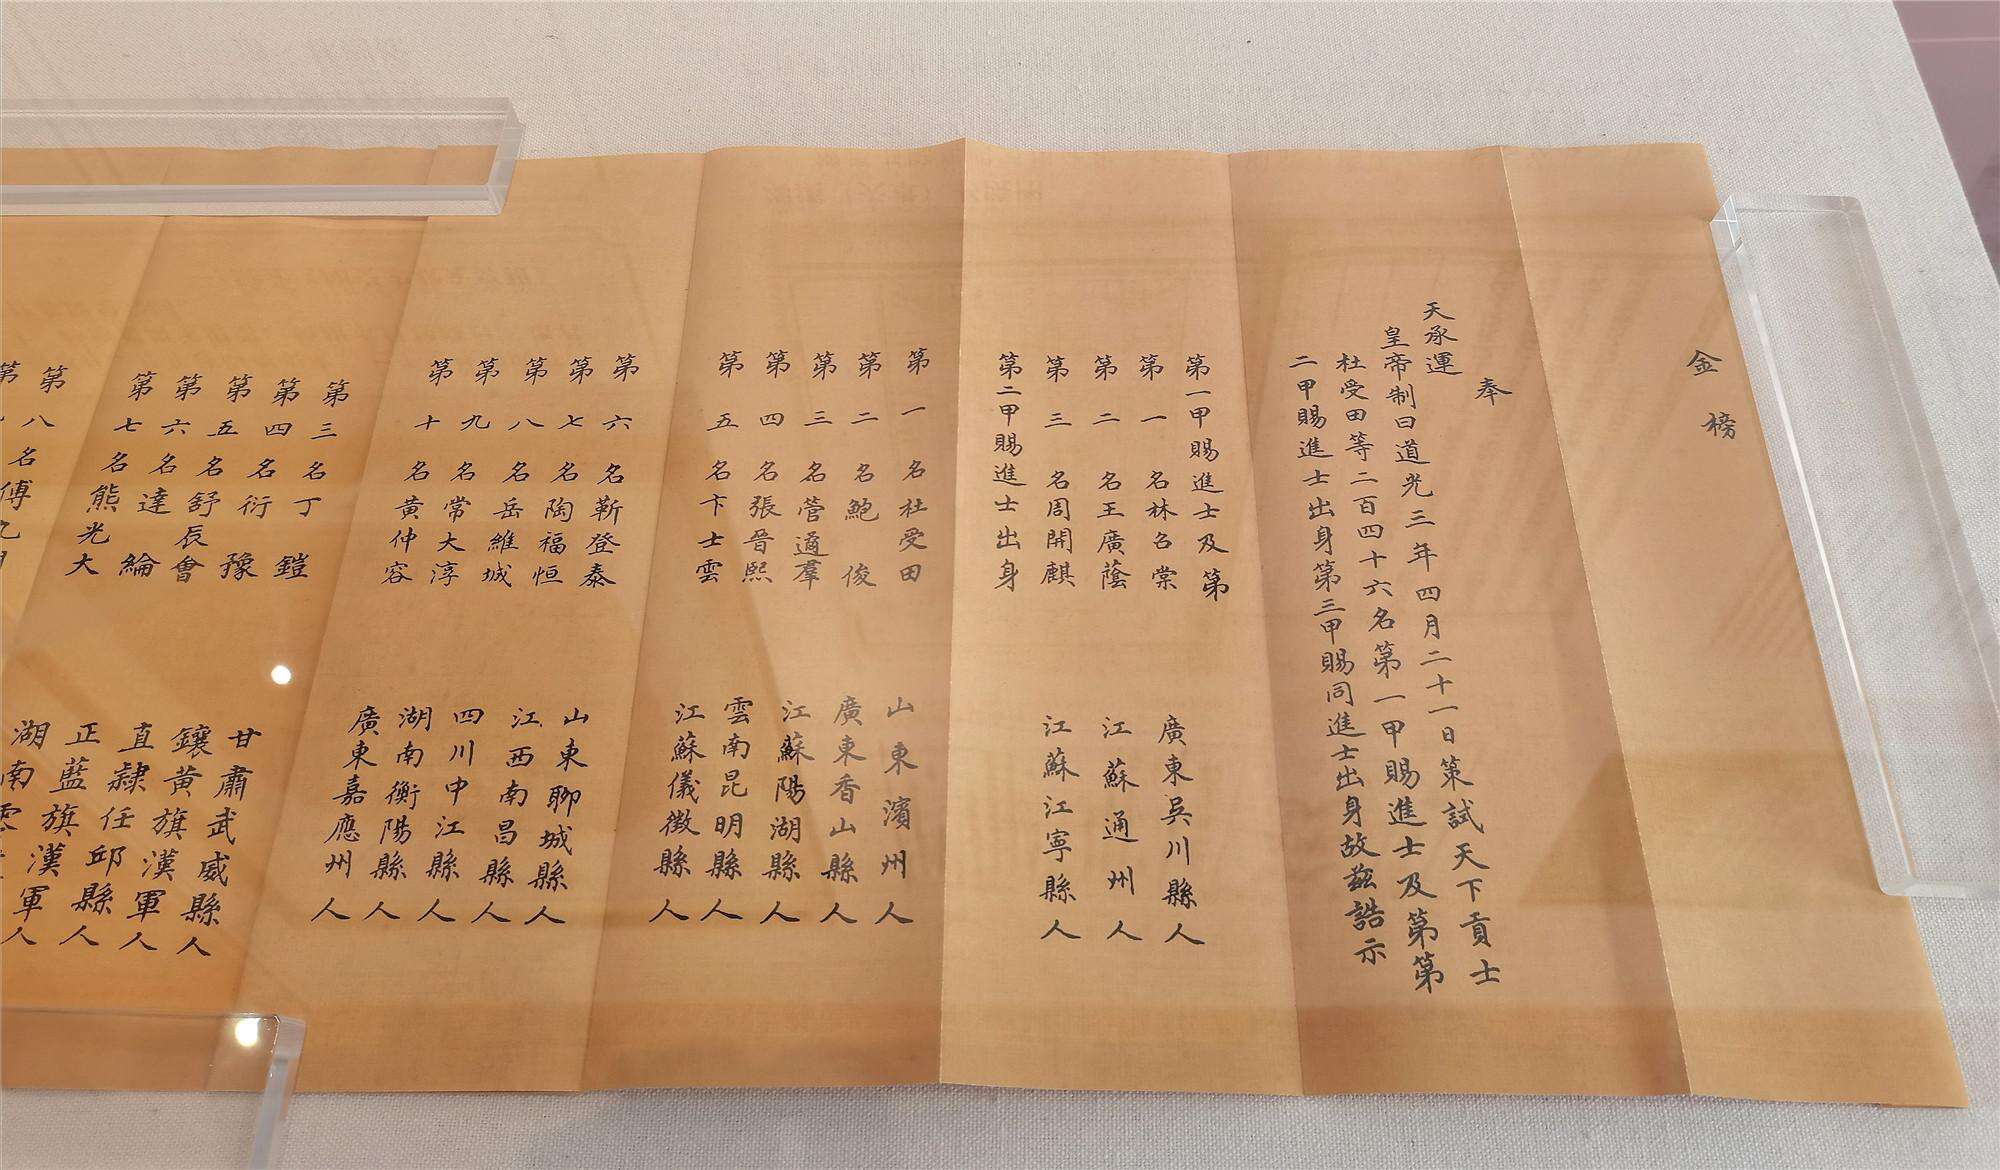 金榜
奉
天承運
皇帝制曰道光三年四月二十一日策試天下貢士
杜受田等二百四十六名第一甲賜進士及第第
二甲賜進士出身第三甲賜同進士出身故茲誥示
第一甲賜進士及第
第一名林召棠 廣東吳川縣人
第二名王廣蔭 江蘇通州人
第三名周開麒 江蘇江寧縣人
第二甲賜進士出身
第一名杜受田 山東濱州人
第二名鮑俊 廣東香山縣人
第三名管遹羣 江蘇陽湖縣人
第四名張晉熙 雲南昆明縣人
第五名卞士雲 江蘇儀徵縣人
第六名靳登泰 山東聊城縣人
第七名陶福恒 江西南昌縣人
第八名岳維城 四川中江縣人
第九名常大淳 湖南衡陽縣人
第十名黃仲容 廣東嘉應州人
第三名丁鎧 甘肅武威縣人
第四名衍豫 鑲黃旗漢軍人
第五名舒辰會 直隸任邱縣人
第六名達綸 正藍旗漢軍人
第七名熊光大 湖南
第八名傅九
第